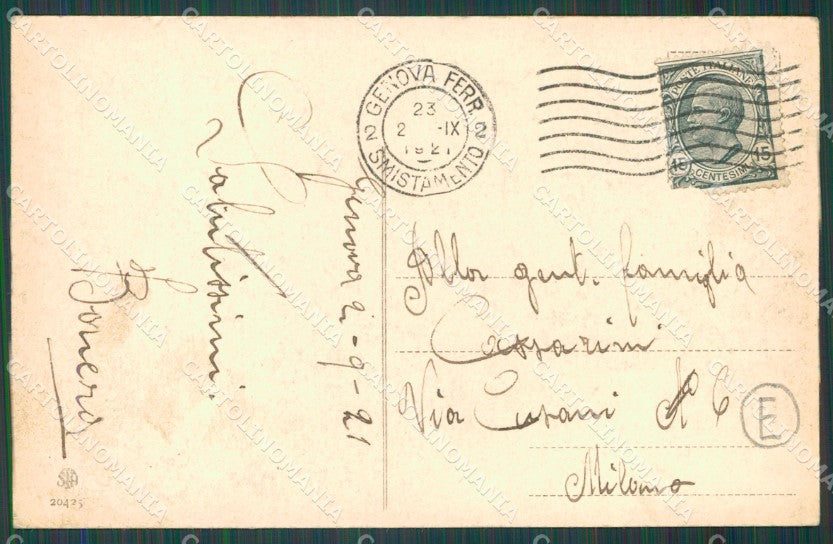 GENOVA FERR.
23
2 -IX
1921
2 2
SMISTAMENTO
POSTE ITALIANE
15 15
CENTESIMI
Genova 2-9-21
Salutissimi.
Bonero
Alla gent. famiglia
Cassarini
Via Cusani N 6
Milano
E
20425
CARTOLINOMANIA